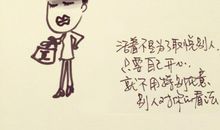 活着不是为了取悦别人
只要自己开心
就不用踌躇在意
别人对我的看法